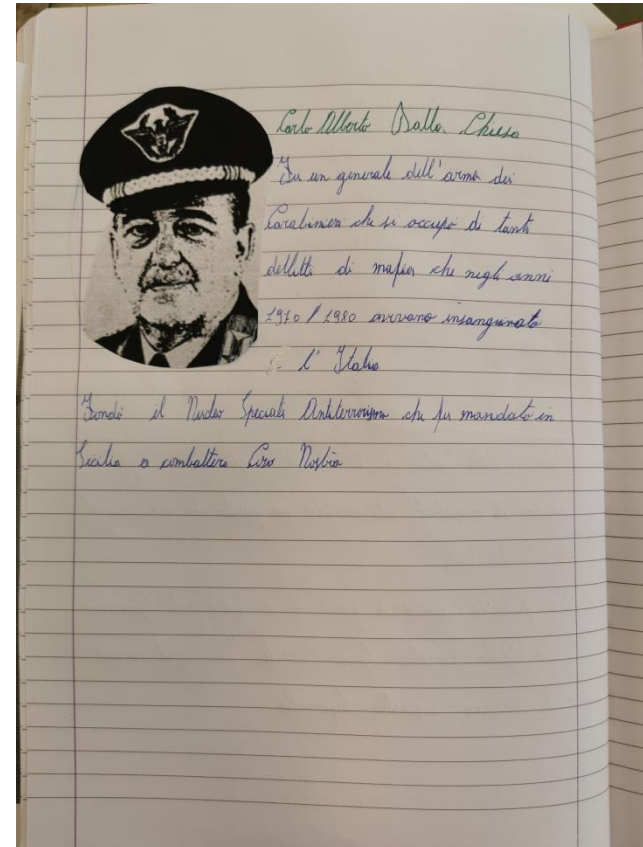 Carlo Alberto Dalla Chiesa
Fu un generale dell'arma dei
Carabinieri che si occupò di tanti
dellitti di mafia che negli anni
1970 / 1980 avevano insanguinato
l'Italia
Fondò il Nucleo Speciale Antiterrorismo che fu mandato in
Sicilia a combattere Cosa Nostra